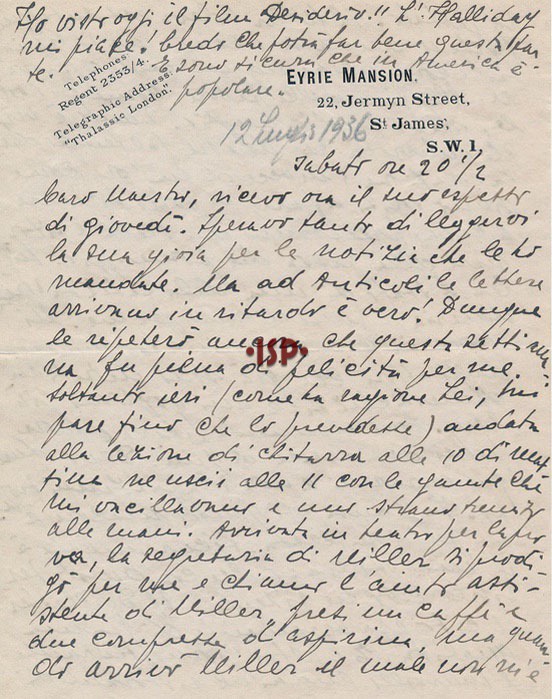 Ho visto oggi il film Desiderio!! L'Halliday
mi piace! Credo che potrà far bene questa par
te. E sono sicura che in America è
popolare.
Telephones.
Regent 2353/4.
Telegraphic Address.
"Thalassic London."
EYRIE MANSION,
22, Jermyn Street,
St James',
S.W.1.
12 1936
Sabato ore 20 1/2
Caro Maestro, ricevo ora il suo espresso
di giovedì. Speravo tanto di leggervi
la sua gioia per le notizie che le ho
mandate. Ma ad Anticoli le lettere
arrivano in ritardo è vero! Dunque
le ripeterò ancora che questa settima
na fu piena di felicità per me.
Soltanto ieri (come ha ragione Lei, mi
pare fino che lo prevedesse) andata
alla lezione di chitarra alle 10 di mat
tina ne uscii alle 11 con le gambe che
mi vacillavano e uno strano tremito
alle mani. Arrivata in teatro per la pro
va, la segretaria di Miller si prodi
gò per me e chiamò l'aiuto assi-
stente di Miller, presi un caffè e
due compresse di aspirina, ma quan
do arrivò Miller il male non mi è
ISP